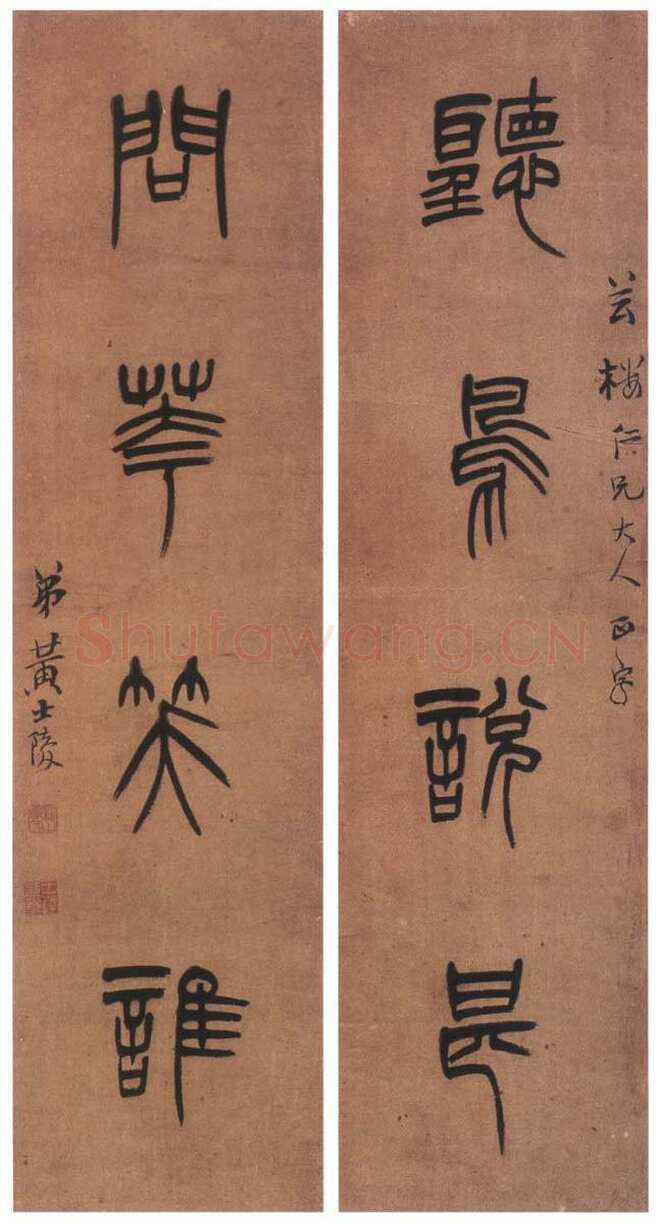 聽鳥說甚
芸樓仁兄大人正字
問華笑誰
弟黃士陵
Shufawang.CN